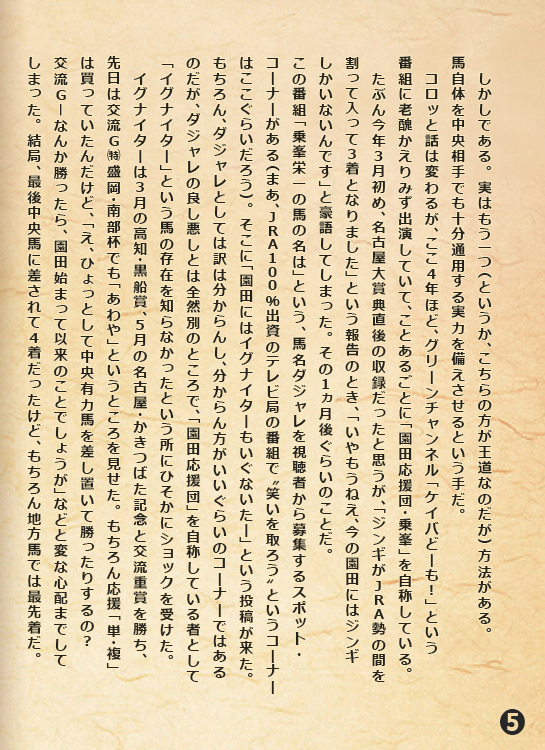 しかしである。実はもう一つ(というか、こちらの方が王道なのだが)方法がある。
馬自体を中央相手でも十分通用する実力を備えさせるという手だ。
コロッと話は変わるが、ここ4年ほど、グリーンチャンネル「ケイバどーも!」という
番組に老醜かえりみず出演していて、ことあるごとに「園田応援団・乗峯」を自称している。
たぶん今年3月初め、名古屋大賞典直後の収録だったと思うが、「ジンギがJRA勢の間を
割って入って3着となりました」という報告のとき、「いやもうねえ、今の園田にはジンギ
しかいないんです」と豪語してしまった。その1ヵ月後ぐらいのことだ。
この番組「乗峯栄一の馬の名は」という、馬名ダジャレを視聴者から募集するスポット・
コーナーがある(まあ、JRA100%出資のテレビ局の番組で〝笑いを取ろう〟というコーナー
はここぐらいだろう)。そこに「園田にはイグナイターもいぐないたー」という投稿が来た。
もちろん、ダジャレとしては訳は分からんし、分からん方がいいぐらいのコーナーではある
のだが、ダジャレの良し悪しとは全然別のところで、「園田応援団」を自称している者として
「イグナイター」という馬の存在を知らなかったという所にひそかにショックを受けた。
イグナイターは3月の高知・黒船賞、5月の名古屋・かきつばた記念と交流重賞を勝ち、
先日は交流G㈵盛岡・南部杯でも「あわや」というところを見せた。もちろん応援「単・複」
は買っていたんだけど、「え、ひょっとして中央有力馬を差し置いて勝ったりするの?
交流GⅠなんか勝ったら、園田始まって以来のことでしょうが」などと変な心配までして
しまった。結局、最後中央馬に差されて4着だったけど、もちろん地方馬では最先着だ。
5